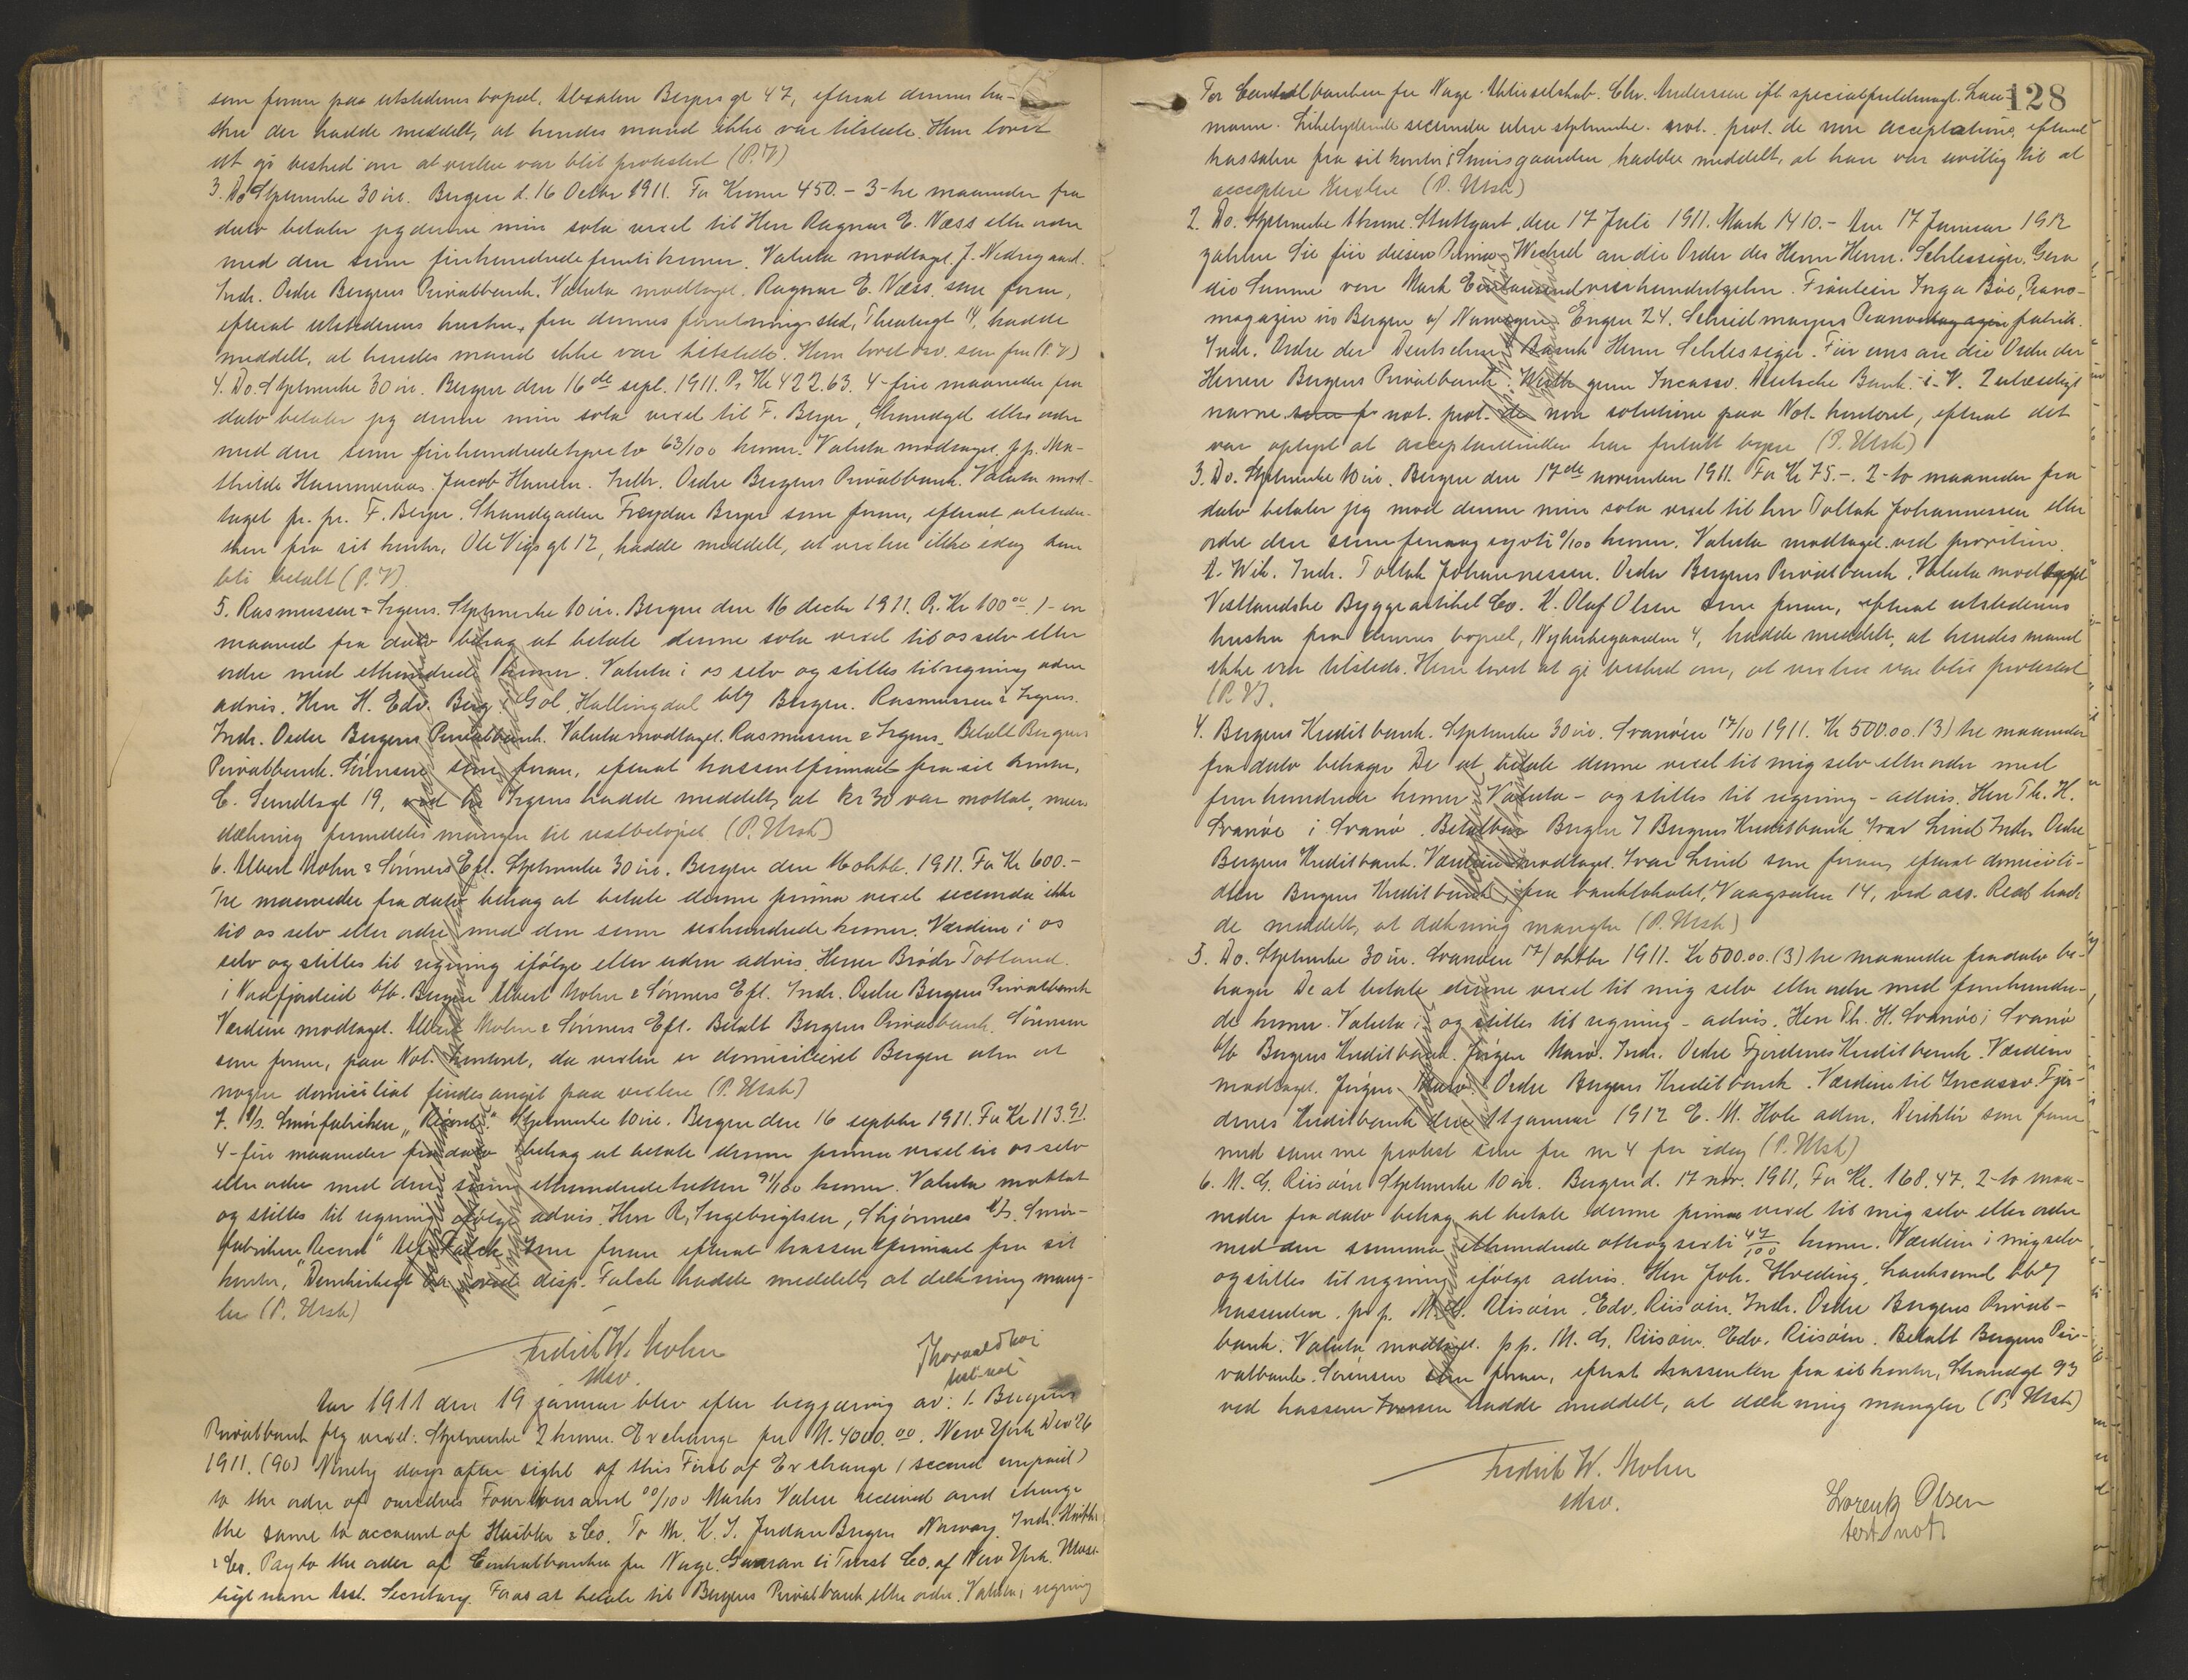 som foran paa utstederens bopæl, Absalon Beyers gt 47, efterat dennes hu-
stru der hadde meddelt, at hendes mand ikke var tilstede. Hun lovet
at gi besked om at vexlen var blit protestert (P.V)
3. Do Stplmerke 30 øre. Bergen d. 16 Octbr 1911. For Kroner 450.- 3-tre maaneder fra
dato betaler jeg denne min sola vexel til Herr Ragnar E. Næss eller ordre
med den sum firehundrede femti kroner. Valuta modtaget. J. Nedregaard.
Indr. Ordre Bergens Privatbank. Valuta modtaget. Ragnar E. Næss. som foran,
efterat utstederens hustru, fra dennes forretningssted, Theatergt 14, hadde
meddelt, at hendes mand ikke var tilstede. Hun lovet osv. som før (P.V)
4. Do. Stplmerke 30 øre. Bergen den 16de sept. 1911. Pr Kr 422.63. 4-fire maaneder fra
dato betaler jeg denne min sola vexel til F. Beyer, Strandgt eller ordre
med den sum firehundredetyveto 63/100 kroner. Valuta modtaget. p.p. Ma-
thilde Hammeraas. Jacob Hansen. Indr. Ordre Bergens Privatbank. Valuta mod-
taget pr. pr. F. Beyer. Strandgaden Frøydar Beyer som foran, efterat utstede-
ren fra sit kontor, Ole Vigs gt 12, hadde meddelt, at vexlen ikke idag kan
bli betalt (P.V).
5. Rasmussen & Irgens. Stplmerke 10 øre. Bergen den 16 decbr 1911. Pr. Kr 100 00. 1-en
maaned fra dato behag at betale denne sola vexel til os selv eller
ordre med ethundrede kroner. Valuta i os selv og stilles til regning uden
advis. Herr H. Edv. Berg, Gol, Hallingdal btg Bergen. Rasmussen & Irgens.
Indr. Ordre Bergens Privatbank. Valuta modtaget. Rasmussen & Irgens. Betalt Bergens
Privatbank. Sørensen som foran, efterat trassent firmaet fra sit kontor,
C. Sundtsgt 19, ved hr Irgens hadde meddelt, at kr 30 var mottat, men
dækning forøvrig mangler til restbeløpet (P. Utsk)
6. Albert Mohn & Sønners Eft. Stplmerke 30 øre. Bergen den 16 oktbr. 1911. For Kr 600.-
Tre maaneder fra dato behag at betale denne prima vexel secunda ikke
til os selv eller ordre med den sum sexhundrede kroner. Værdien i os
selv og stilles til regning ifølge eller uden advis. Herrer Brødr Totland.
i Nordfjordeid b/b. Bergen Albert Mohn & Sønners Eft. Indr. Ordre Bergens Privatbank
Værdien modtaget. Albert Mohn & Sønners Eft. Betalt Bergens Privatbank. Sørensen
som foran, paa Not. kontoret, da vexlen er domicilieret Bergen uten at
nogen domiciliat findes angit paa vexlen (P. Utsk)
7. A/s. Smørfabriken "Record". Stplmerke 10 øre. Bergen den 16 septbr 1911. For Kr 113.91.
4-fire maaneder fra dato behag at betale denne prima vexel til os selv
eller ordre med den sum ethundredetretten 91/100 kroner. Valuta mottat
og stilles til regning ifølge advis. Herr R. Ingebrigtsen, Skjønnes A/s. Smør-
fabriken Record" Alf Falck som foran efterat trassentfirmaet fra sit
kontor, Domkirkegt ved disp. Falck hadde meddelt, at dækning mang-
ler (P. Utsk)
Fredrik W. Mohn
Thorvald
test. not
Aar 1911 den 19 januar blev efter begjæring av: 1. Bergens
Privatbank flg vexel: Stplmerke 2 kroner. Exchange for M. 4000.00. New York Dec 26
1911. (90) Ninety days after sight of this First of Exchange (second unpaid)
to the order of ourselves Fourthousand 00/100 Marks Value received and charge
the same to account of Huibter & Co. To Mr. K. S. Jordan Bergen Norway. Indr.
& Co. Pay to the order of Centralbanken for Norge. Guaranti Trust Co. of New York. Ulæse-
ligt navn Asst. Secretary. For os at betale til Bergens Privatbank eller ordre. Valuta i regning
128
For Centralbanken for Norge Aktieselskab. Chr. Anderssen ifl. specialfuldmagt.
mann. Likelydende secunda uten stplmerke. not. prot. de non acceptatione, efterat
trassaten fra sit kontor, Smørsgaarden hadde meddelt, at han var uvillig til at
acceptere vexlen (P. Utsk)
2. Do. Stplmerke 1 krone. Stuttgart, den 17 Juli 1911. Mark 1410.- Am 17 Januar 1912
zahlen Sie für diesen Prima Wechsel an die Order des Herrn Herm. Schlessiger, Gera
die Summe von Mark Eintausendvierhundertzehn. Fräulein Inga Böe, Piano-
magazin in Bergen a/ Norwegen Engen 24. Schiedmayers Pianomagazin fabrik.
Indr. Ordre der Deutschen Bank Herm Schlessiger. Für uns an die Ordre der
Herren Bergens Privatbank. Werth zum Incasso. Deutsche Bank. i. V. 2 ulæselige
navne som fr not. prot. de non solutione paa Not. kontoret, efterat det
var oplyst at acceptantinden har forlatt byen (P. Utsk)
3. Do. Stplmerke 10 øre. Bergen den 17de november 1911. For Kr 75.-. 2-to maaneder fra
dato betaler jeg mod denne min sola vexel til herr Tollak Johannessen eller
ordre den sum femogsyvti 0/100 kroner. Valuta modtaget ved provition.
A. Wik. Indr. Tollak Johannessen. Ordre Bergens Privatbank. Valuta modtaget
Vestlandske Byggeartikel Co. K. Olaf Olsen som foran, efterat utstederens
hustru fra dennes bopæl, Nykirkegaarden 4, hadde meddelt, at hendes mand
ikke var tilstede. Hun lovet at gi besked om, at vexlen var blit protestert
(P.V).
4. Bergens Kreditbank. Stplmerke 30 øre. Svanöen 17/10 1911. Kr 500.00. (3) tre maaneder
fra dato behager De at betale denne vexel til mig selv eller ordre med
femhundrede kroner. Valuta - og stilles til regning - advis. Herr Th. H.
Svanöe i Svanö. Betalbar Bergen I Bergens Kreditbank Ivar Lind Indr. Ordre
Bergens Kreditbank. Værdien modtaget. Ivar Lind som foran, efterat domicili-
aten Bergens Kreditbank, fra banklokalet, Vaagsalm 14, ved ass. Reab had-
de meddelt, at dækning mangler (P. Utsk)
5. Do. Stplmerke 30 øre. Svanöen 17/ oktbr 1911. Kr 500.00. (3) tre maaneder fra dato be-
hager De at betale denne vexel til mig selv eller ordre med femhundre-
de kroner. Valuta i og stilles til regning - advis. Herr Th. H. Svanöe i Svanö
b/b Bergens Kreditbank. Jørgen Indr. Ordre Fjordenes Kreditbank. Værdien
modtaget. Jørgen Ordre Bergens Kreditbank. Værdien til Incasso. Fjor-
denes Kreditbank den 11 januar 1912 E. M. Hole adm. Direktör som foran
med samme protest som for nr 4 for idag (P. Utsk)
6. M. G. Riisöen Stplmerke 10 øre. Bergen d. 17 nov. 1911, For Kr. 168.47. 2-to maa-
neder fra dato behag at betale denne prima vexel til mig selv eller ordre
med den summa ethundrede otteogsexti 47/100 kroner. Værdien i mig selv
og stilles til regning ifølge advis. Herr Joh. Hveding, Lauksund btg
trassenten. p.p. M. G. Riisöen. Edv. Riisöen. Indr. Ordre Bergens Privat-
bank. Valuta modtaget. p.p. M. G. Riisöen. Edv. Riisöen. Betalt Bergens Pri-
vatbank. Sørensen som foran, efterat trassenten fra sit kontor, Strandgt 93
ved kasserer Iversen hadde meddelt, at dækning mangler (P. Utsk)
Fredrik W. Mohn
Lorentz Olsen
test. not.